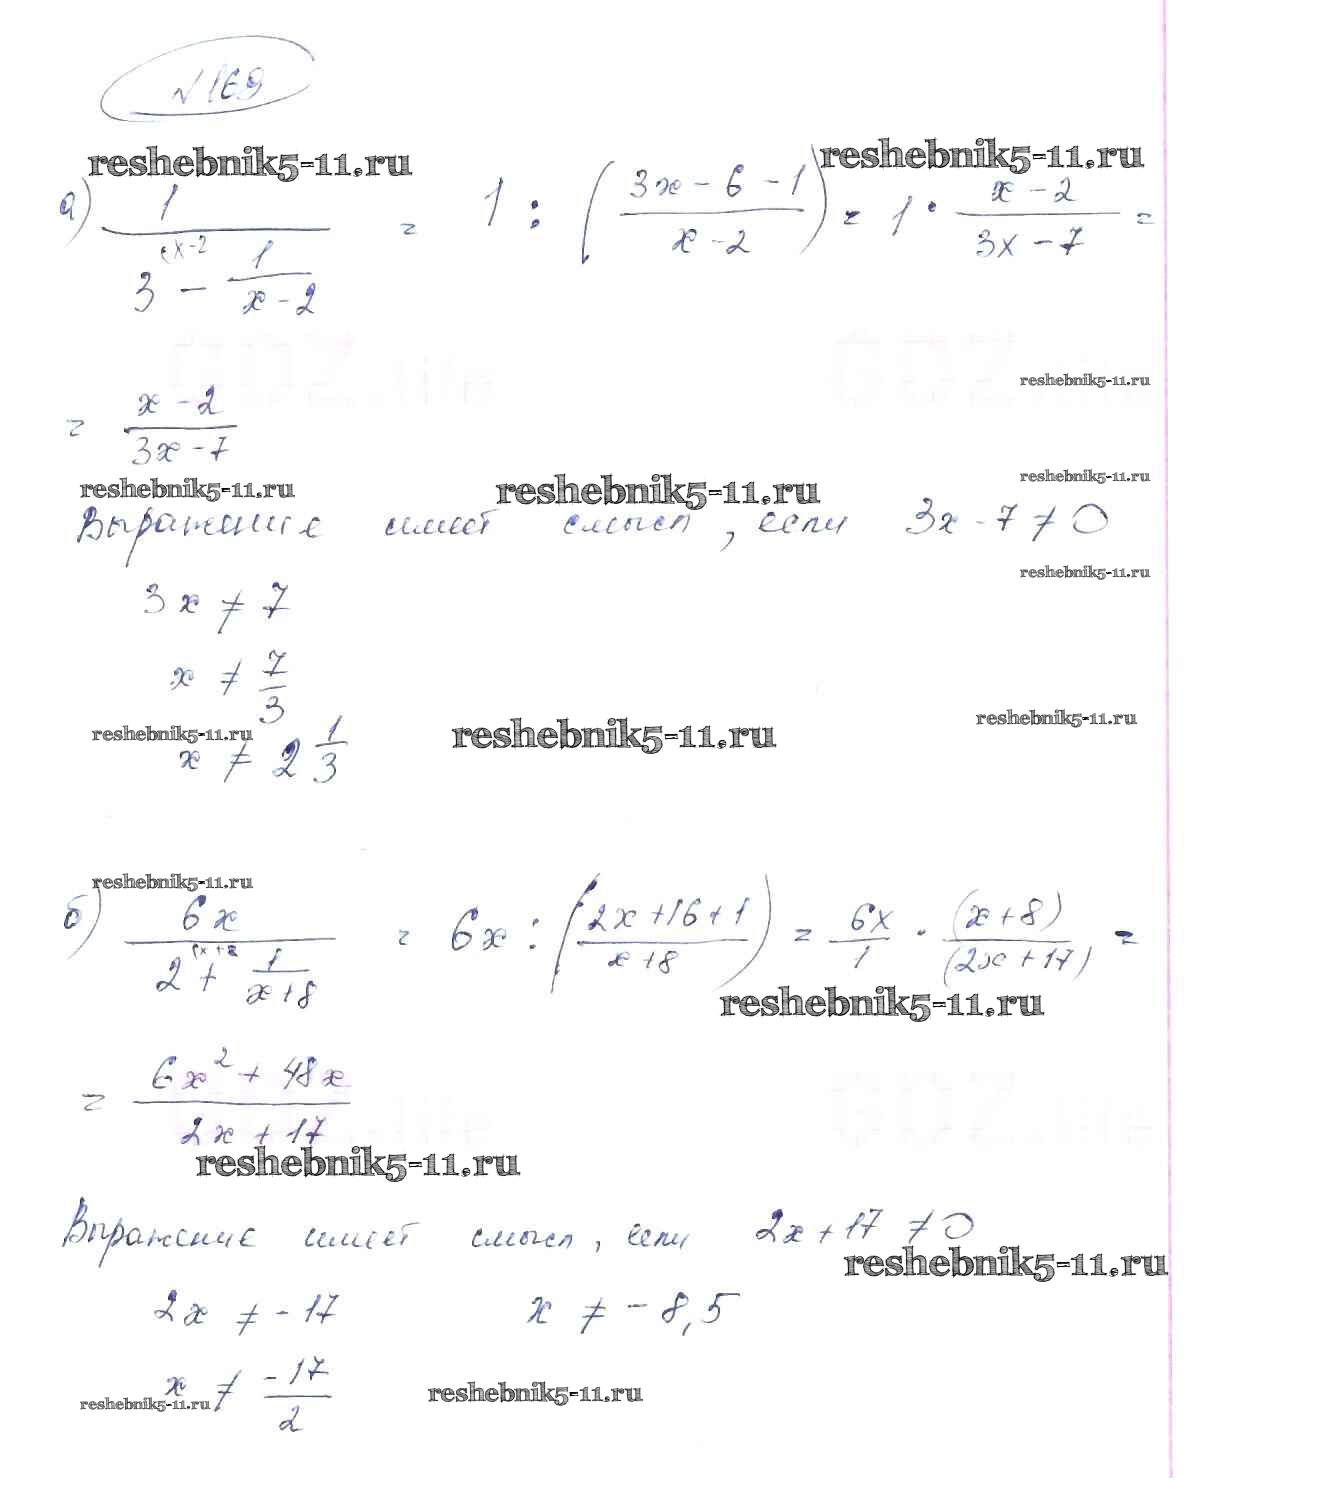 №169
reshebnik5-11.ru reshebnik5-11.ru
а) 1 / (3 - 1/(x-2)) = 1 : ((3x-6-1)/(x-2)) = 1 · (x-2)/(3x-7) =
GDZ.life GDZ.life
reshebnik5-11.ru
= (x-2)/(3x-7)
reshebnik5-11.ru reshebnik5-11.ru reshebnik5-11.ru
Выражение имеет смысл, если 3x-7≠0
reshebnik5-11.ru
3x ≠ 7
x ≠ 7/3
reshebnik5-11.ru reshebnik5-11.ru reshebnik5-11.ru
x ≠ 2 1/3
reshebnik5-11.ru
б) 6x / (2 + 1/(x+8)) = 6x : ((2x+16+1)/(x+8)) = 6x/1 · (x+8)/(2x+17) =
reshebnik5-11.ru
= (6x²+48x)/(2x+17)
GDZ.life GDZ.life
reshebnik5-11.ru
Выражение имеет смысл, если 2x+17≠0
reshebnik5-11.ru
2x ≠ -17 x ≠ -8,5
x ≠ -17/2
reshebnik5-11.ru reshebnik5-11.ru